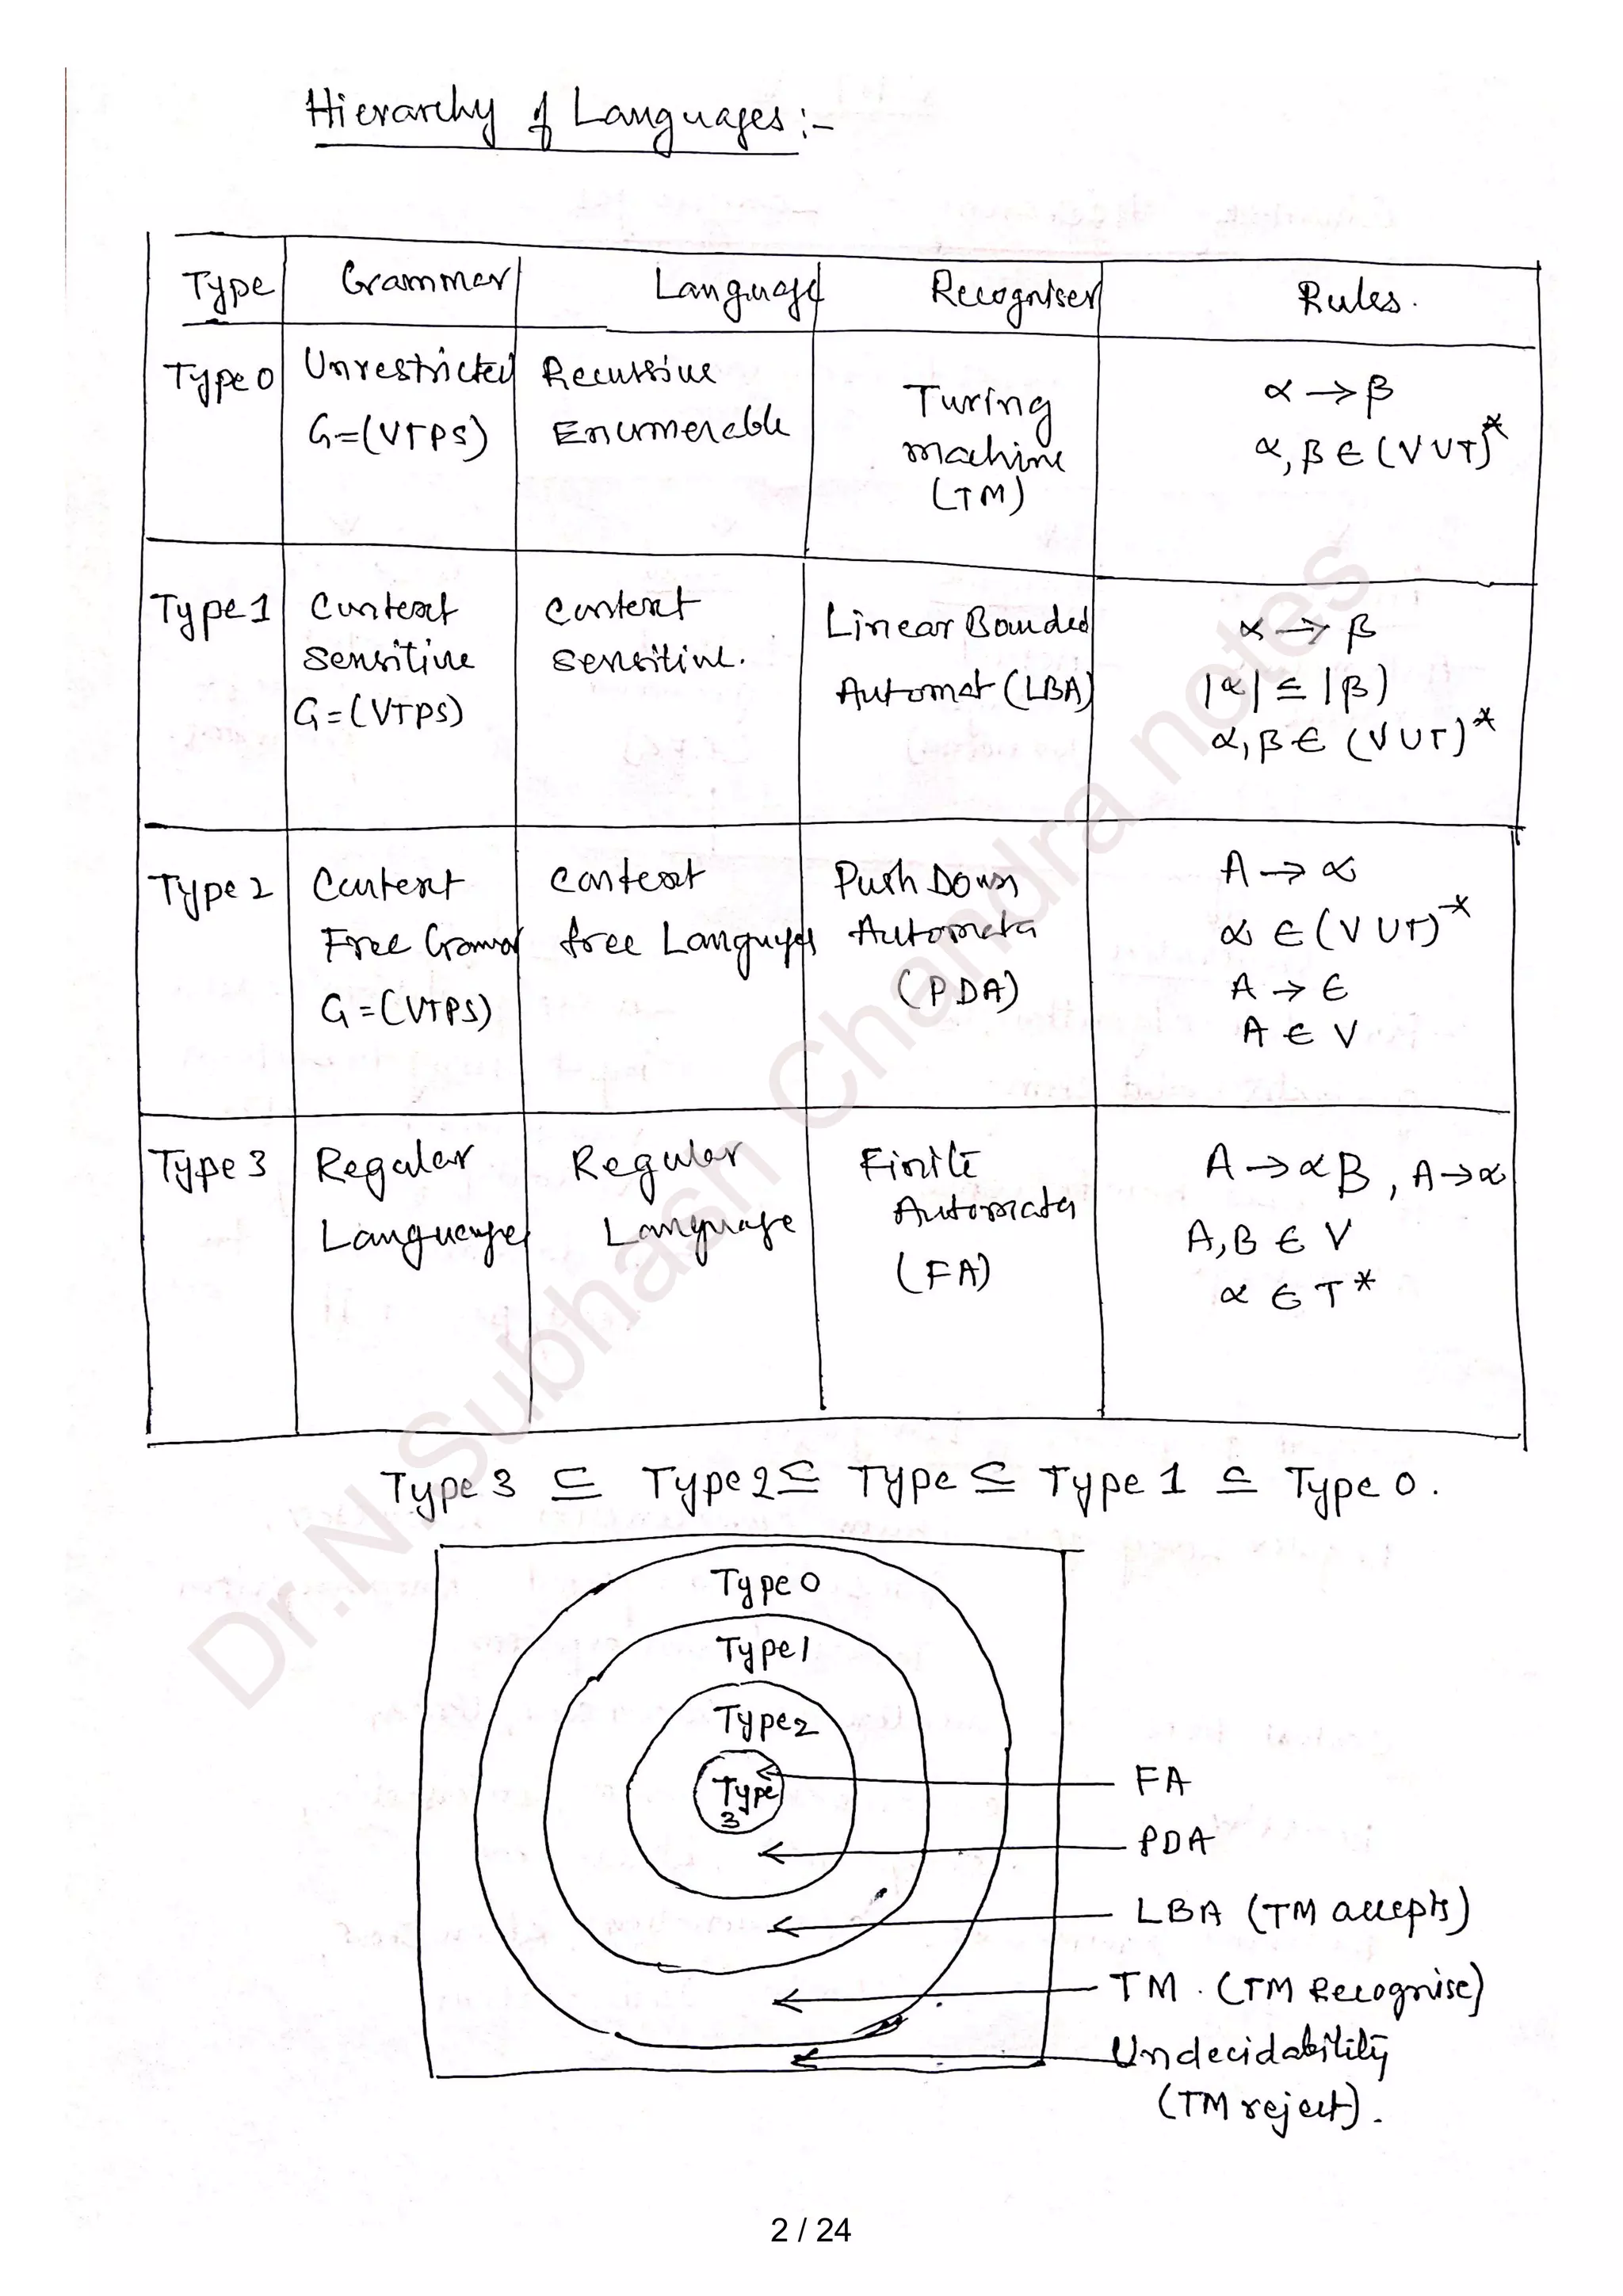 Hierarchy of Languages :-
Type Grammer Language Recogniser Rules.
Type 0 Unrestricted G=(VTPS) Recursive Enumerable Turing machine (TM) α → β α, β ∈ (V ∪ T)*
Type 1 Context Sensitive G=(VTPS) Context Sensitive. Linear Bounded Automat (LBA) α → β |α| ≤ |β| α, β ∈ (V ∪ T)*
Type 2 Context Free Grammar G=(VTPS) Context free Languages Push Down Automata (PDA) A → α α ∈ (V ∪ T)* A → ∈ A ∈ V
Type 3 Regular Languages Regular Language Finite Automata (FA) A → αB, A → α A,B ∈ V α ∈ T*
Type 3 ⊆ Type 2 ⊆ Type ⊆ Type 1 ⊆ Type 0.
Type 0
Type 1
Type 2
Type 3
FA
PDA
LBA (TM accepts)
TM. (TM Recognise)
Undecidability
(TM reject).
Dr.N.Subhash Chandra notes
2 / 24